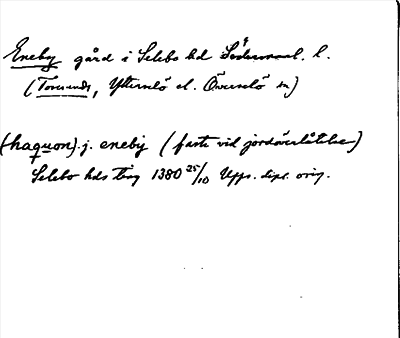 Eneby gård i Selebo hd Södermanl. l.
(Torsunda, Ytterselö el. Överselö sn)
(haquon) j. enebij (faste vid jordöverlåtelse)
Selebo hds ting 1380 25/10 Upps. dipl. orig.